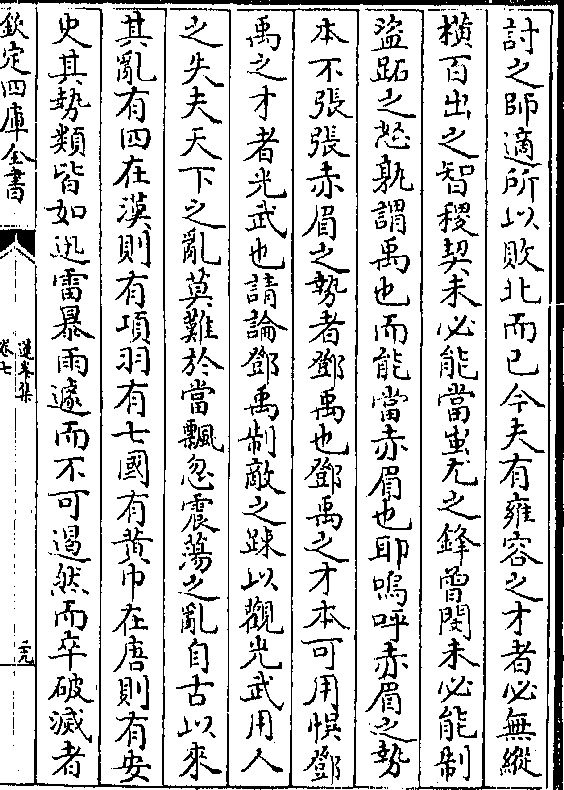 討之師適所以敗北而已今夫有雍容之才者必無縱
橫百出之智稷契未必能當蚩尤之鋒曾閔未必能制
盜跖之怒孰謂禹也而能當赤眉也耶嗚呼赤眉之勢
本不張張赤眉之勢者鄧禹也鄧禹之才本可用悞鄧
禹之才者光武也請論鄧禹制敵之踈以觀光武用人
之失夫天下之亂莫難於當飄忽震蕩之亂自古以來
其亂有四在漢則有項羽有七國有黃巾在唐則有安
史其勢類皆如迅雷暴雨遽而不可遏然而卒破滅者
欽定四庫全書
卷七
二十九